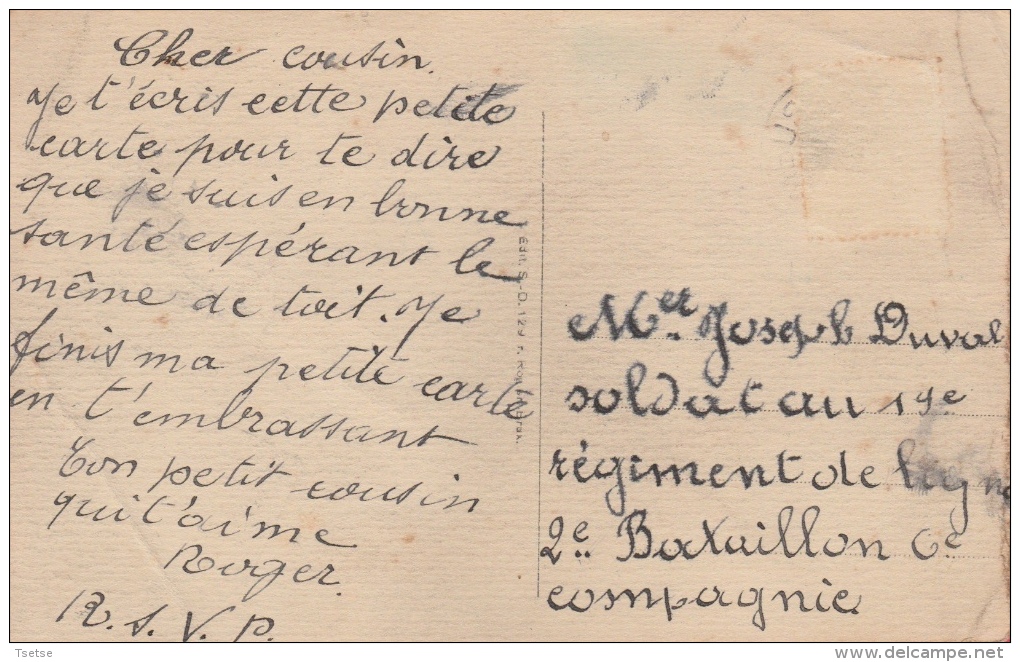 Cher cousin.
Je t'écris cette petite
carte pour te dire
que je suis en bonne
santé espérant le
même de toit. Je
finis ma petite carte
en t'embrassant
Ton petit cousin
qui t'aime
Roger.
R. S. V. P.
Édit. S.-D. 129
Mer. Joseph Duval
soldat au 19e
régiment de ligne
2e Bataillon 6e
compagnie
Tsetse
delcampe.net